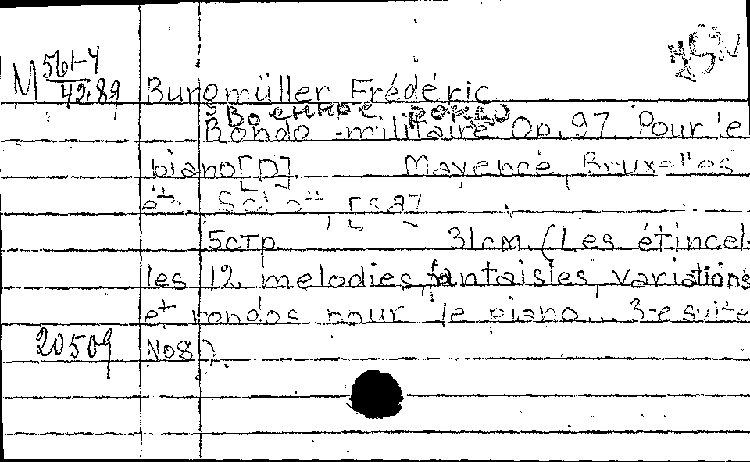 M 561-4
42.89
Burgmüller Frédéric
Военное рондо
Rondo-militaire Op.97 Pour le
piano [D]. Mayence, Bruxelles
et Schott, [s.a]
5стр 31cm. (Les étincel-
les 12 melodies, fantaisies, variations
et rondos pour le piano... 3-e suite
20509 No8).